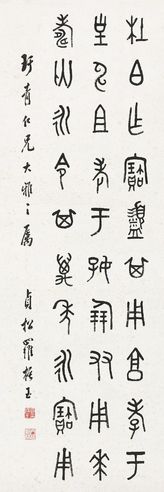 杜白乍寶盨其用享孝于
皇申且考于好倗友用𠦪
壽匄永令其萬年永寶用
青仁兄大雅之屬 貞松羅振玉